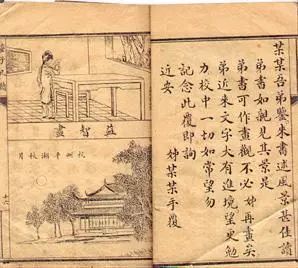 某某吾弟鑒來書述成景甚佳讀
弟書如親見其景是
弟書可作畫觀不必 姊再畫矣
弟近來文字大有進境望更勉
力校中一切如常望勿
記念此覆即詢
近安 姊某某手覆
益智畫
杭州平湖秋月